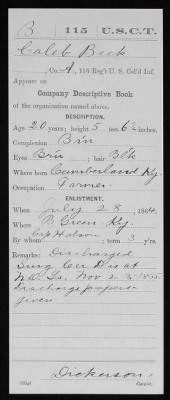 B 115 U.S.C.T.
Caleb Beck
, Co. A, 115 Reg't U. S. Col'd Inf.
Appears on
Company Descriptive Book
of the organization named above.
DESCRIPTION.
Age 20 years; height 5 feet 6½ inches.
Complexion Br'n
Eyes Br'n; hair Bl'k
Where born Cumberland Ky.
Occupation Farmer.
ENLISTMENT.
When July 28, 1864.
Where B. Green Ky.
By whom Cap Hobson; term 3 y'rs.
Remarks: Discharged
Surg Cer Dis at
N.O. La. Nov 2 1865
Discharge papers
given.
Dickerson
Copyist.